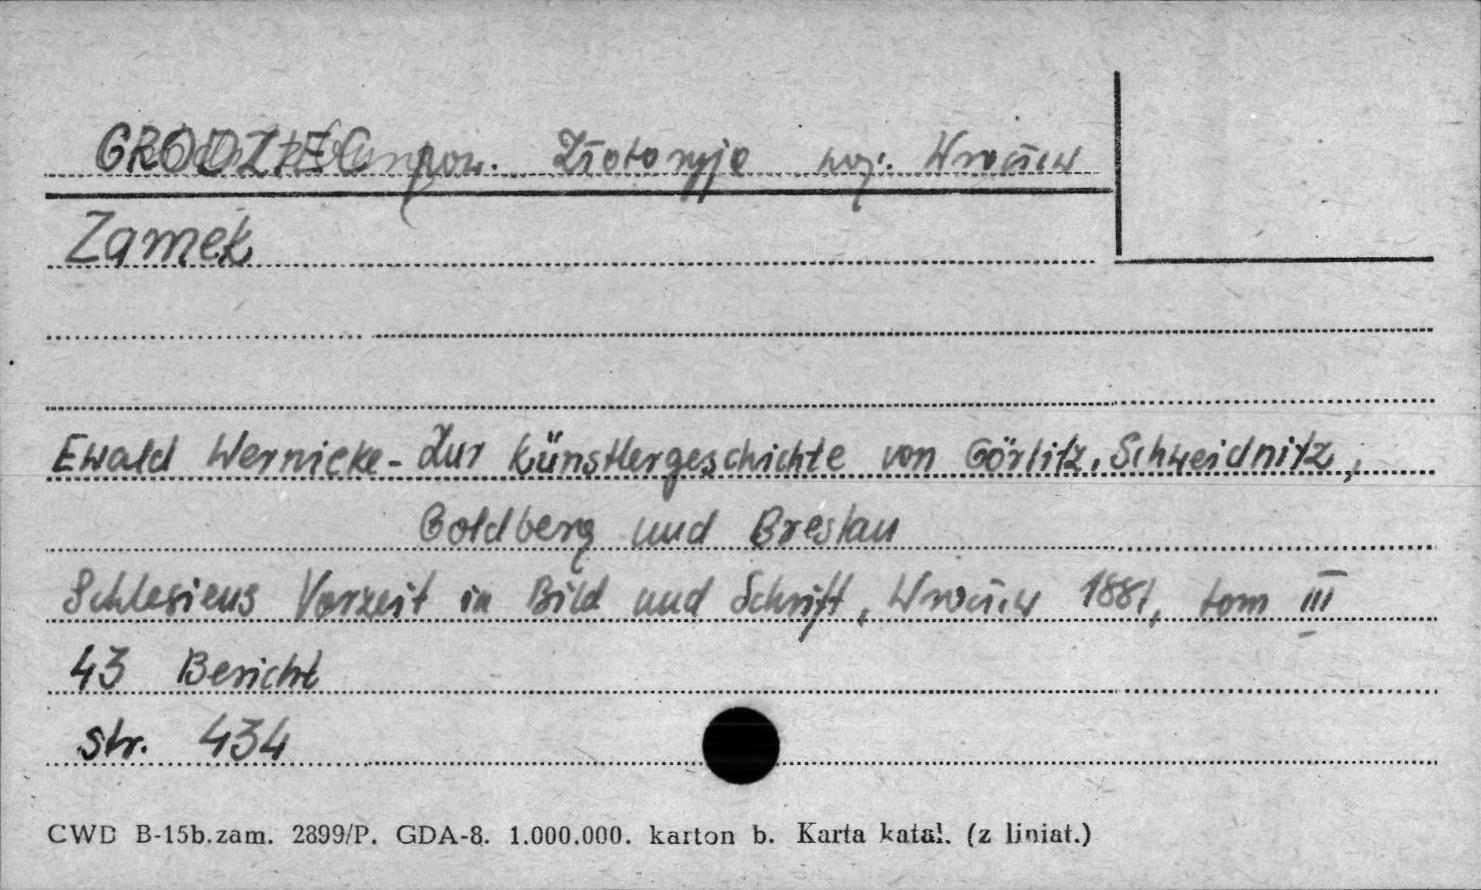 GRODZIEC pow. Złotoryja woj. Wrocław
Zamek
Ewald Wernicke - Zur Künstlergeschichte von Görlitz, Schweidnitz,
Goldberg und Breslau
Schlesiens Vorzeit in Bild und Schrift, Wrocław 1881, tom III
43 Bericht
str. 434
CWD B-15b.zam. 2899/P. GDA-8. 1.000.000. karton b. Karta katal. (z liniat.)